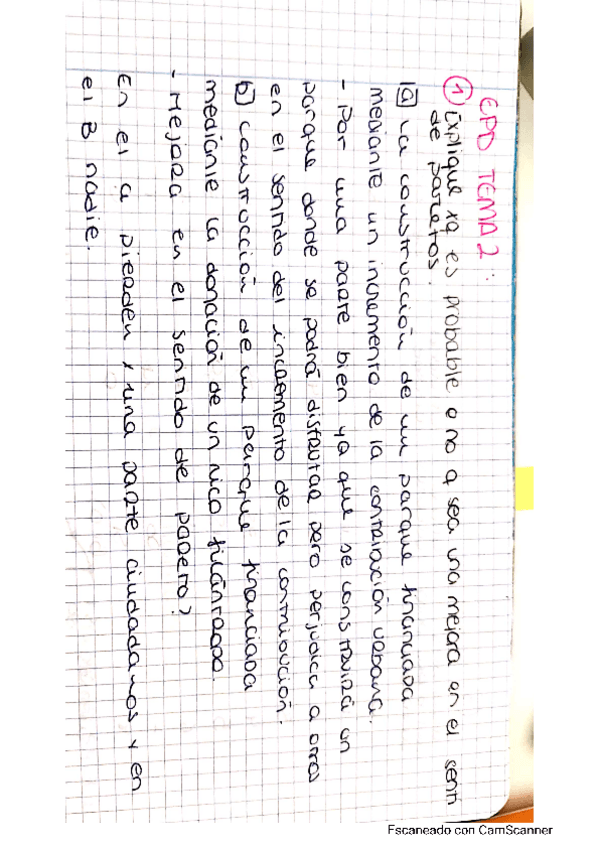 EPD TEMA 2:
① Explique xq es probable o no q sea una mejora en el senti
de paretos.
a) La construcción de un parque financiada
mediante un incremento de la contribución urbana.
- Por una parte bien ya que se construirá un
parque donde se podrá disfrutar pero perjudica a otros
en el sentido del incremento de la contribución.
b) construcción de un parque financiada
mediante la donación de un rico filántropo.
- Mejora en el sentido de pareto?
En el a pierden x una parte ciudadanos y en
el B nadie.
Escaneado con CamScanner